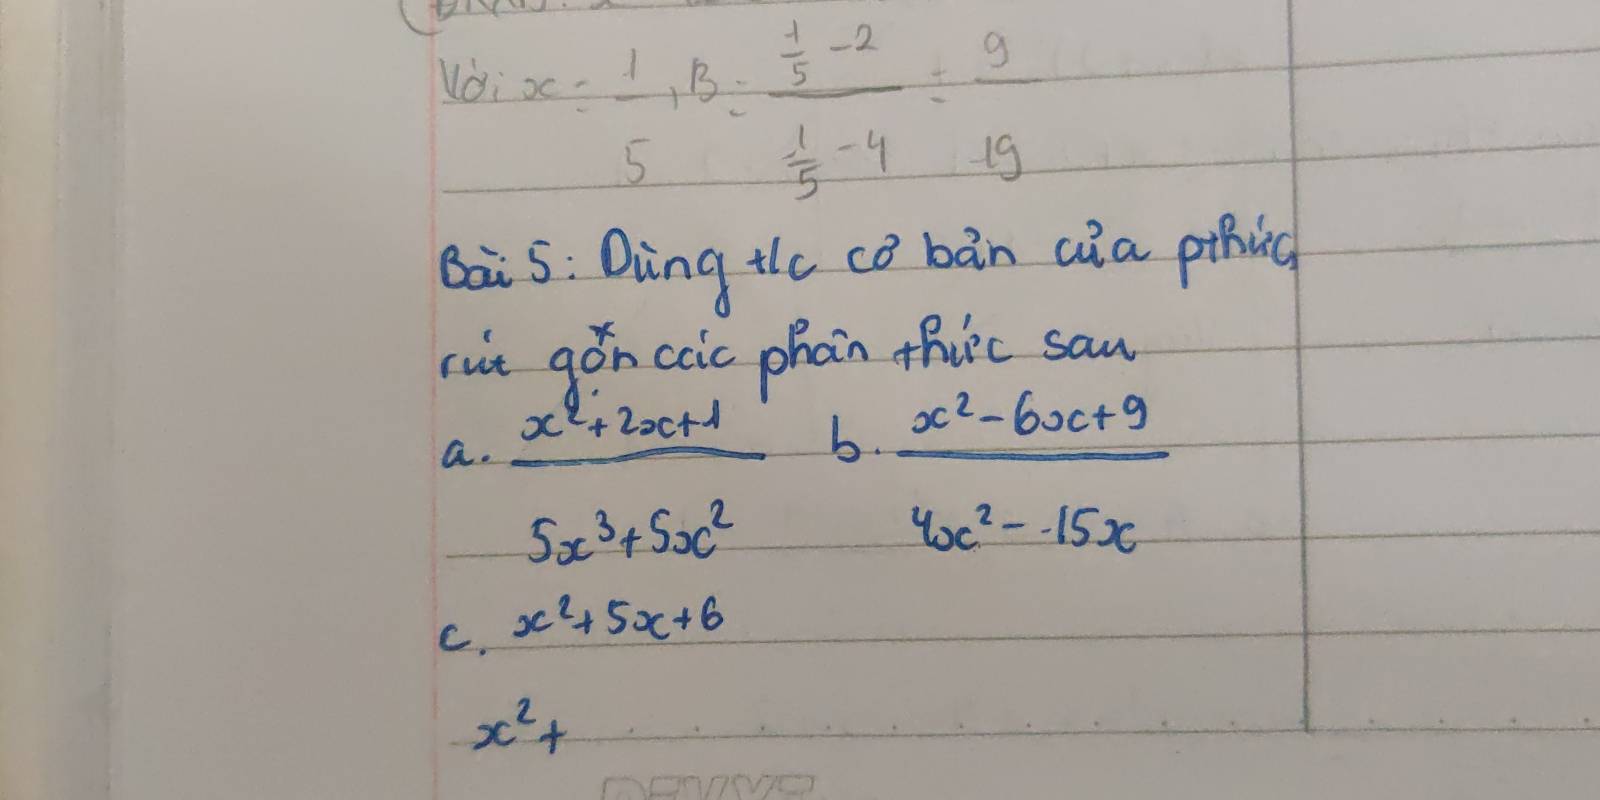 Với x = 1/5, B = (1/5 - 2)/(1/5 - 4) = 9/19
Bài 5: Dùng t/c cơ bản của pthức
rút gọn các phân thức sau
a. (x² + 2x + 1)/(5x³ + 5x²) b. (x² - 6x + 9)/(4x² - 15x)
c. x² + 5x + 6
x² +